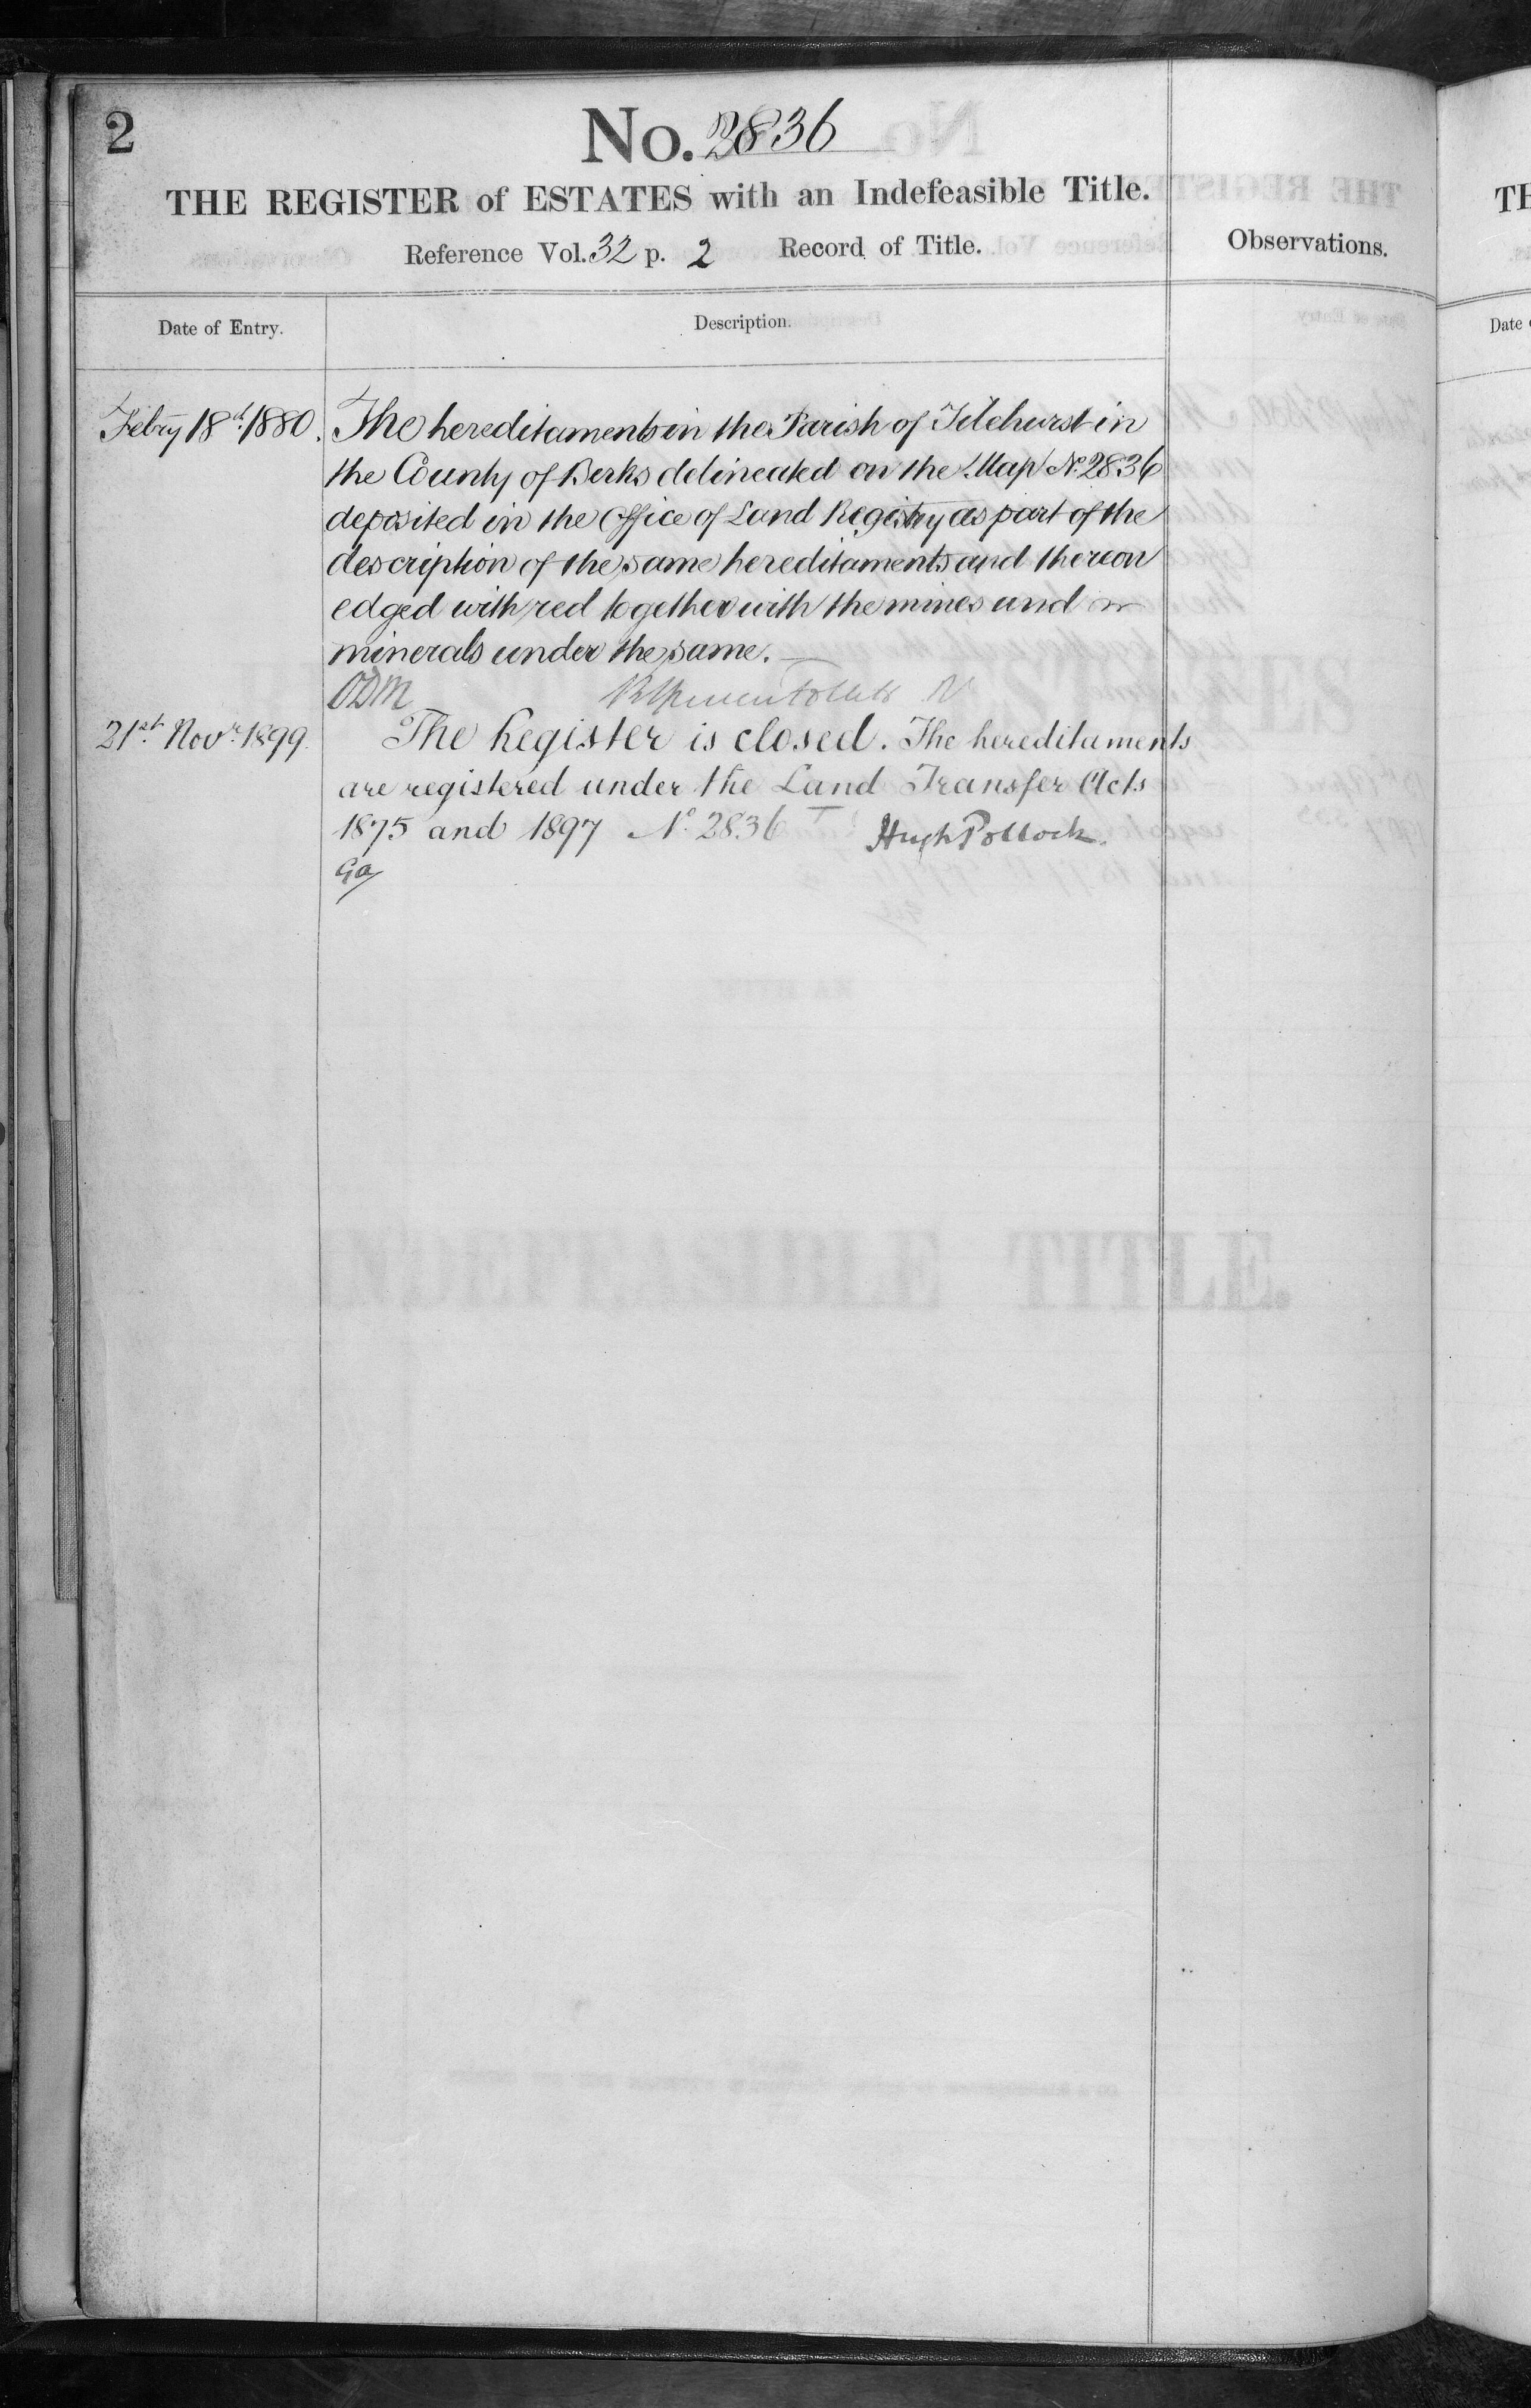 2
No. 2836
THE REGISTER of ESTATES with an Indefeasible Title.
Reference Vol. 32 p. 2 Record of Title.
Observations.
Date of Entry.
Description.
Febry 18th 1880.
The hereditaments in the Parish of Tilehurst in
the County of Berks delineated on the Map No. 2836
deposited in the Office of Land Registry as part of the
description of the same hereditaments and thereon
edged with red together with the mines and
minerals under the same.
ODM
21st Novr. 1899.
The Register is closed. The hereditaments
are registered under the Land Transfer Acts
1875 and 1897 No. 2836 Hugh Pollock.
Ga
TH
Date